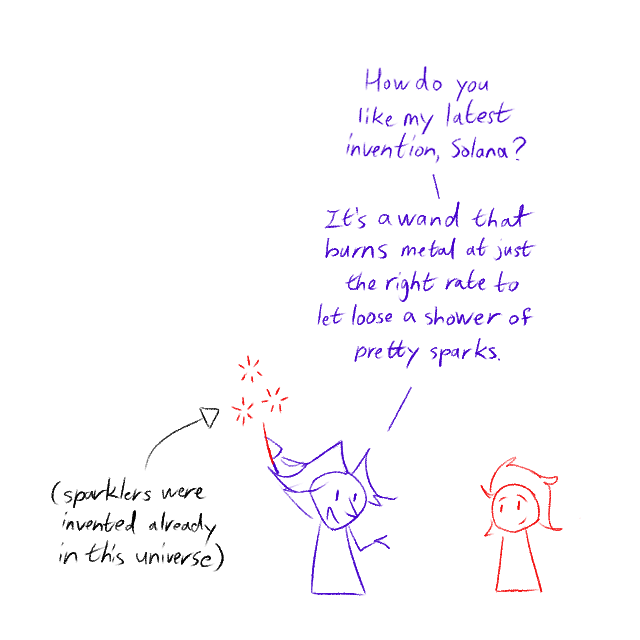 How do you
like my latest
invention, Solana?
It's a wand that
burns metal at just
the right rate to
let loose a shower of
pretty sparks.
(sparklers were
invented already
in this universe)